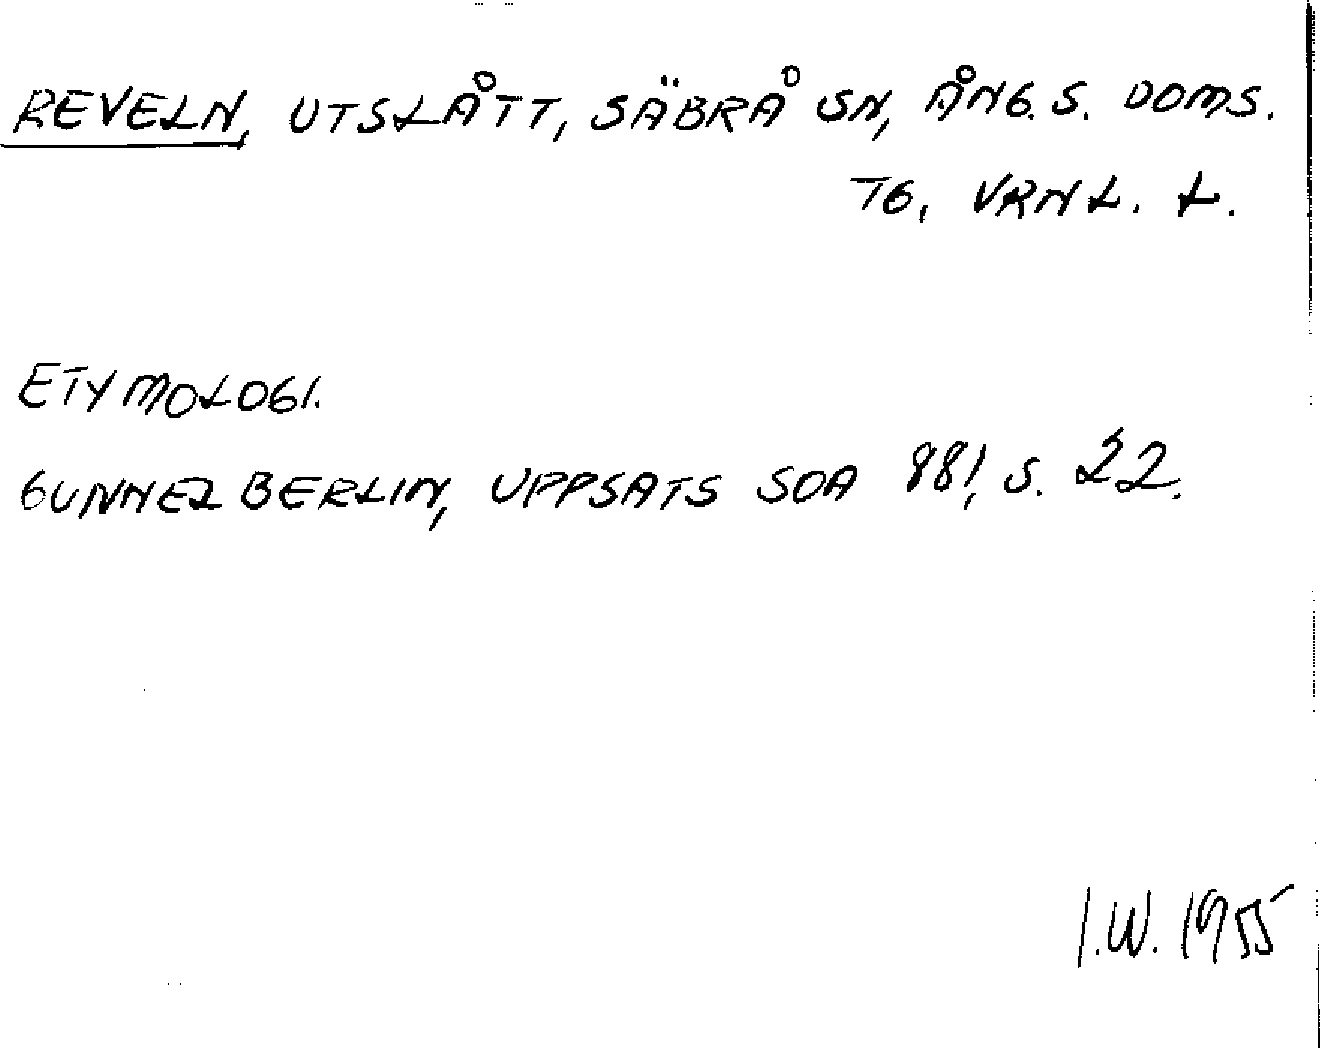 REVELN, UTSLÅTT, SÄBRÅ SN, ÅNG. S. DOMS.
TG, VRNL. L.
ETYMOLOGI.
GUNNEL BERLIN, UPPSATS SOA 881, S. 22.
I.W. 1955